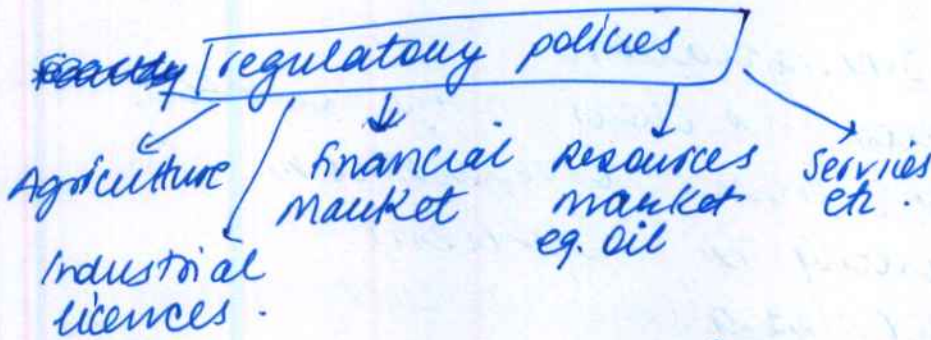 regulatory policies
Agriculture
Industrial
licences.
financial
market
Resources
market
eg. Oil
Services
etc.